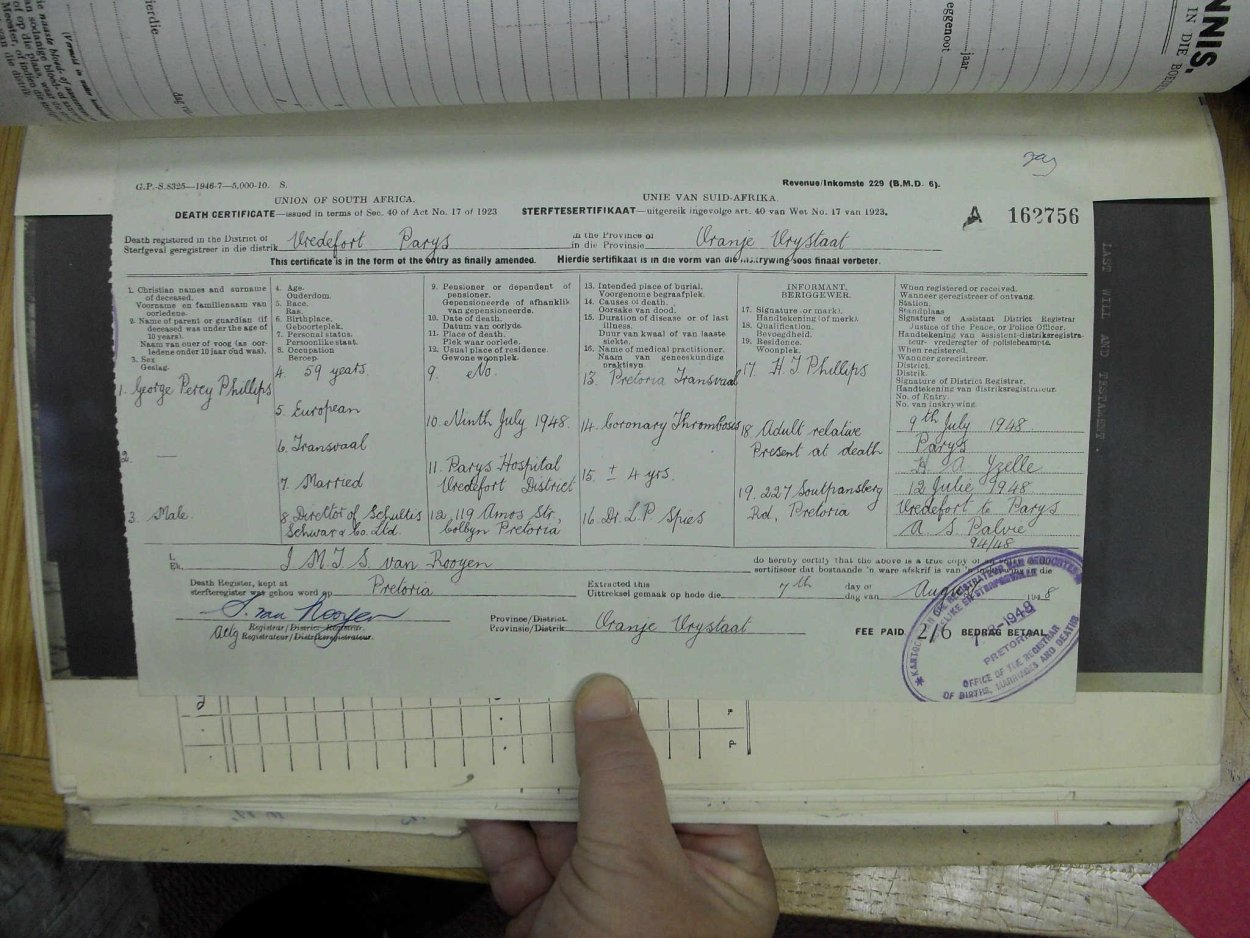 NNIS,
IN DIE BOEDEL
eggenoot
jaar
ierdie
dag
(Vermeld
G.P.-S.8325—1946-7—5,000-10. S.
Revenue/Inkomste 229 (B.M.D. 6).
UNION OF SOUTH AFRICA.
UNIE VAN SUID-AFRIKA.
DEATH CERTIFICATE—issued in terms of Sec. 40 of Act No. 17 of 1923
STERFTESERTIFIKAAT—uitgereik ingevolge art. 40 van Wet No. 17 van 1923.
A 162756
Death registered in the District of
Sterfgeval geregistreer in die distrik
Vredefort Parys
in the Province of
in die Provinsie
Oranje Vrystaat
This certificate is in the form of the entry as finally amended.
Hierdie sertifikaat is in die vorm van die inskrywing soos finaal verbeter.
1. Christian names and surname
of deceased.
Voorname en familienaam van
oorledene.
2. Name of parent or guardian (if
deceased was under the age of
10 years).
Naam van ouer of voog (as oor-
ledene onder 10 jaar oud was).
3. Sex
Geslag.
1. George Percy Phillips
2. —
3. Male.
4. Age.
Ouderdom.
5. Race.
Ras.
6. Birthplace.
Geboorteplek.
7. Personal status.
Persoonlike staat.
8. Occupation
Beroep.
4. 59 years
5. European
6. Transvaal
7. Married
8. Direktor of Schultes
Schwar & Co. Ltd.
9. Pensioner or dependent of
pensioner.
Gepensioneerde of afhanklik
van gepensioneerde.
10. Date of death.
Datum van oorlyde.
11. Place of death.
Plek waar oorlede.
12. Usual place of residence.
Gewone woonplek.
9. No.
10. Ninth July 1948.
11. Parys Hospital
Vredefort District
12. 119 Amos Str,
Colbyn Pretoria
13. Intended place of burial.
Voorgenome begraafplek.
14. Causes of death.
Oorsake van dood.
15. Duration of disease or of last
illness.
Duur van kwaal of van laaste
siekte.
16. Name of medical practitioner.
Naam van geneeskundige
praktisyn.
13. Pretoria Transvaal
14. Coronary Thrombosis
15. ± 4 yrs.
16. Dr. L.P Spies
INFORMANT.
BERIGGEWER.
17. Signature (or mark).
Handtekening (of merk).
18. Qualification.
Bevoegdheid.
19. Residence.
Woonplek.
17. H. J Phillips
18 Adult relative
Present at death
19. 227 Soutpansberg
Rd, Pretoria
When registered or received.
Wanneer geregistreer of ontvang.
Station.
Standplaas
Signature of Assistant District Registrar
Justice of the Peace, or Police Officer.
Handtekening van assistent-distriksregistra-
teur vrederegter of polisiebeampte.
When registered.
Wanneer geregistreer.
District.
Distrik.
Signature of District Registrar.
Handtekening van distriksregistrateur.
No. of Entry.
No. van inskrywing.
9th July 1948
Parys
H. A Yzelle
12 Julie 1948
Vredefort te Parys
A. S. Palvie
94/48
I,
Ek,
J M J S. van Rooyen
do hereby certify that the above is a true copy of an entry in the
sertifiseer dat bostaande 'n ware afskrif is van 'n inskrywing in die
Death Register, kept at
sterfteregister wat gehou word op
Pretoria
Extracted this
Uittreksel gemaak op hede die
7th
day of
dag van
August
1948
S. van Rooyen
Actg Registrar/District Registrar.
Registrateur/Distriksregistrateur.
Province/District.
Provinsie/Distrik
Oranje Vrystaat
FEE PAID 2/6 BEDRAG BETAAL
PRETORIA
OFFICE OF THE REGISTRAR
OF BIRTHS, MARRIAGES AND DEATHS
LAST WILL AND TESTAMENT